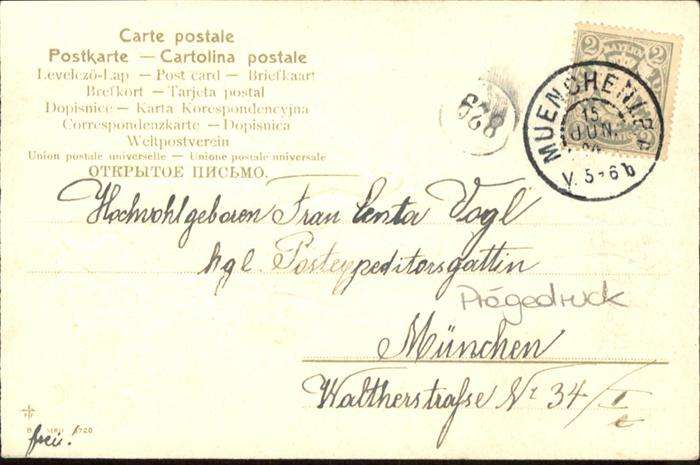 Carte postale
Postkarte — Cartolina postale
Levelező-Lap — Post card — Briefkaart
Brefkort — Tarjeta postal
Dopisnice — Karta Korespondencyjna
Correspondenzkarte — Dopisnica
Weltpostverein
Union postale universelle — Unione postale universale
ОТКРЫТОЕ ПИСЬМО.
2 BAYERN 2
MUENCHEN
15
JUN.
V. 5-6 b
Hochwohlgeboren Frau Centa Vogl
kgl. Postexpeditorsgattin
Prägedruck
München
Waltherstraße Nr 34/I
frei!